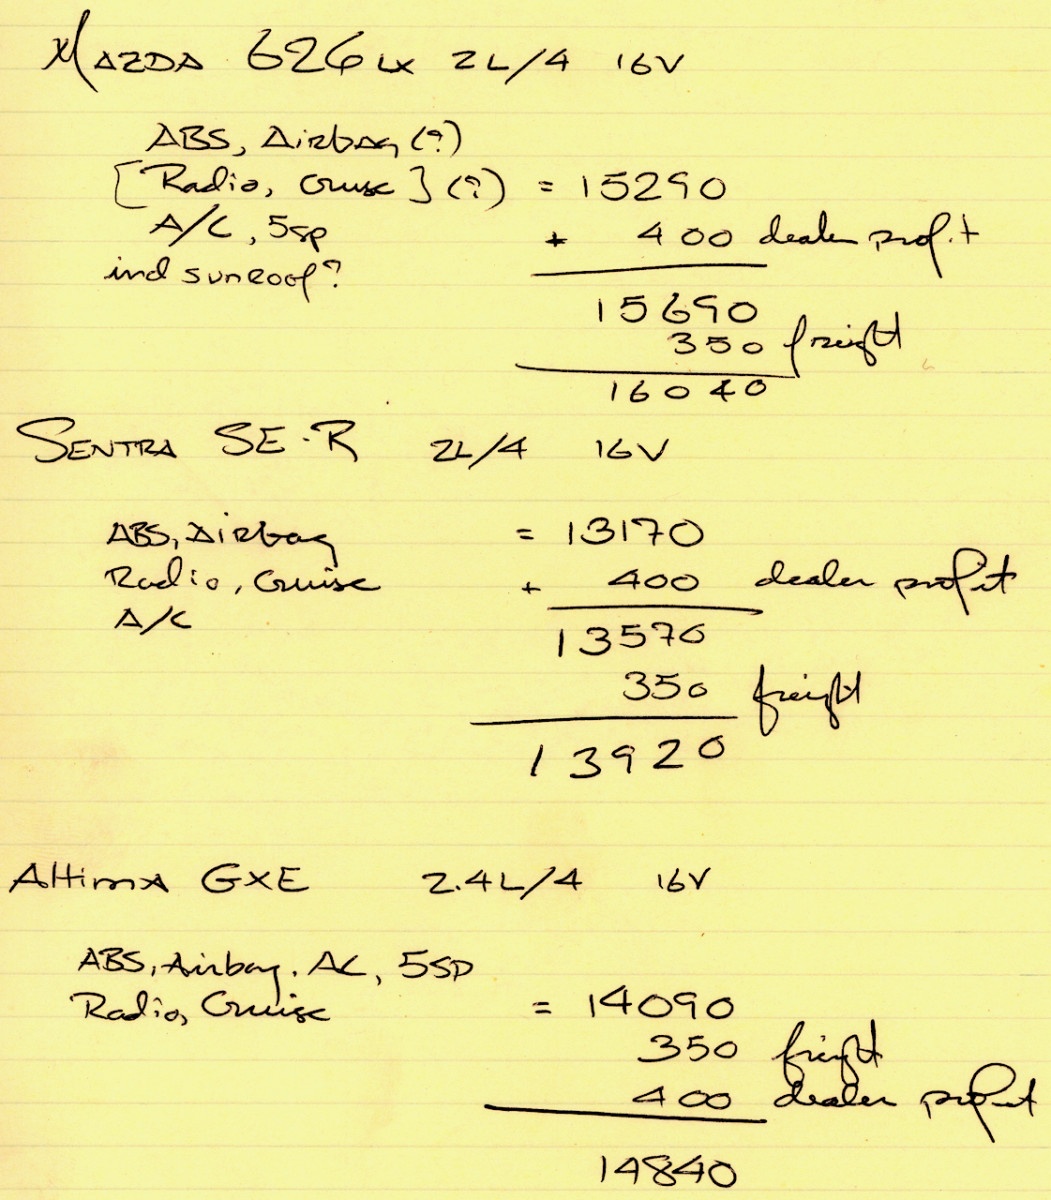 MAZDA 626 LX 2L/4 16V
ABS, Airbag (?)
[Radio, cruise] (?) = 15290
A/C, 5sp + 400 dealer profit
incl sunroof?
15690
350 freight
16040
SENTRA SE-R 2L/4 16V
ABS, Airbag = 13170
Radio, Cruise + 400 dealer profit
A/C
13570
350 freight
13920
Altima GXE 2.4L/4 16V
ABS, Airbag, AC, 5SP
Radio, Cruise = 14090
350 freight
400 dealer profit
14840